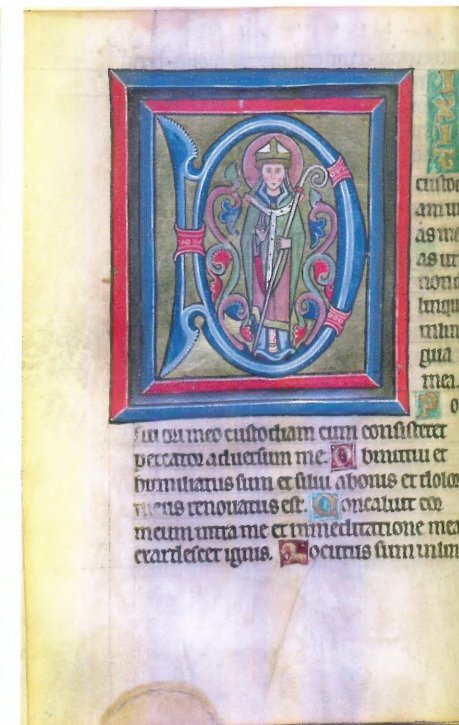 D
IXI
custod
am ui
as me
as ut
non d
linqu
in lin
gua
mea.
P o
sui ori meo custodiam cum consisteret
peccator aduersum me. O bmutui et
humiliatus sum et silui abonis et dolor
meus renouatus est. C oncaluit cor
meum intra me et inmeditatione mea
exardescet ignis. L ocutus sum inlin